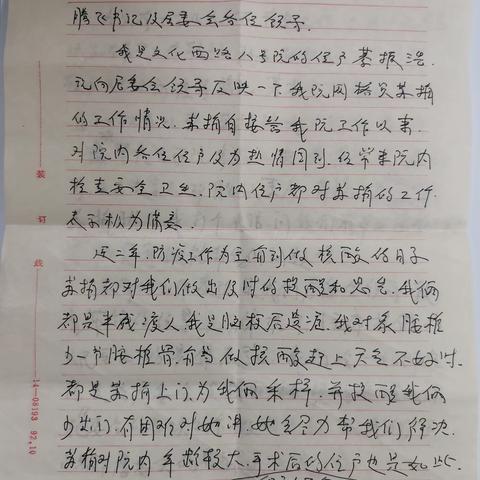 腾飞书记及居委会各位领导.
我是文化西路八号院的住户慕振浩.
现向居委会领导反映一下我院网格员苏楠
的工作情况.苏楠自接管我院工作以来.
对院内各位住户极为热情周到.经常来院内
检查安全卫生.院内住户都对苏楠的工作
表示极为满意.
这二年.防疫工作为主.有到做核酸的日子
苏楠都对我们做出及时的提醒和忠告.我俩
都是半残废人我是脑梗后遗症.我对象腰椎
少一节腰椎骨.有当做核酸赶上天气不好时.
都是苏楠上门.为我俩采样.并提醒我俩
少出门.有困难对她讲.她会尽力帮我们解决.
苏楠对院内年龄较大.手术后的住户也是如此.
装
订
线
14—08193 92.10